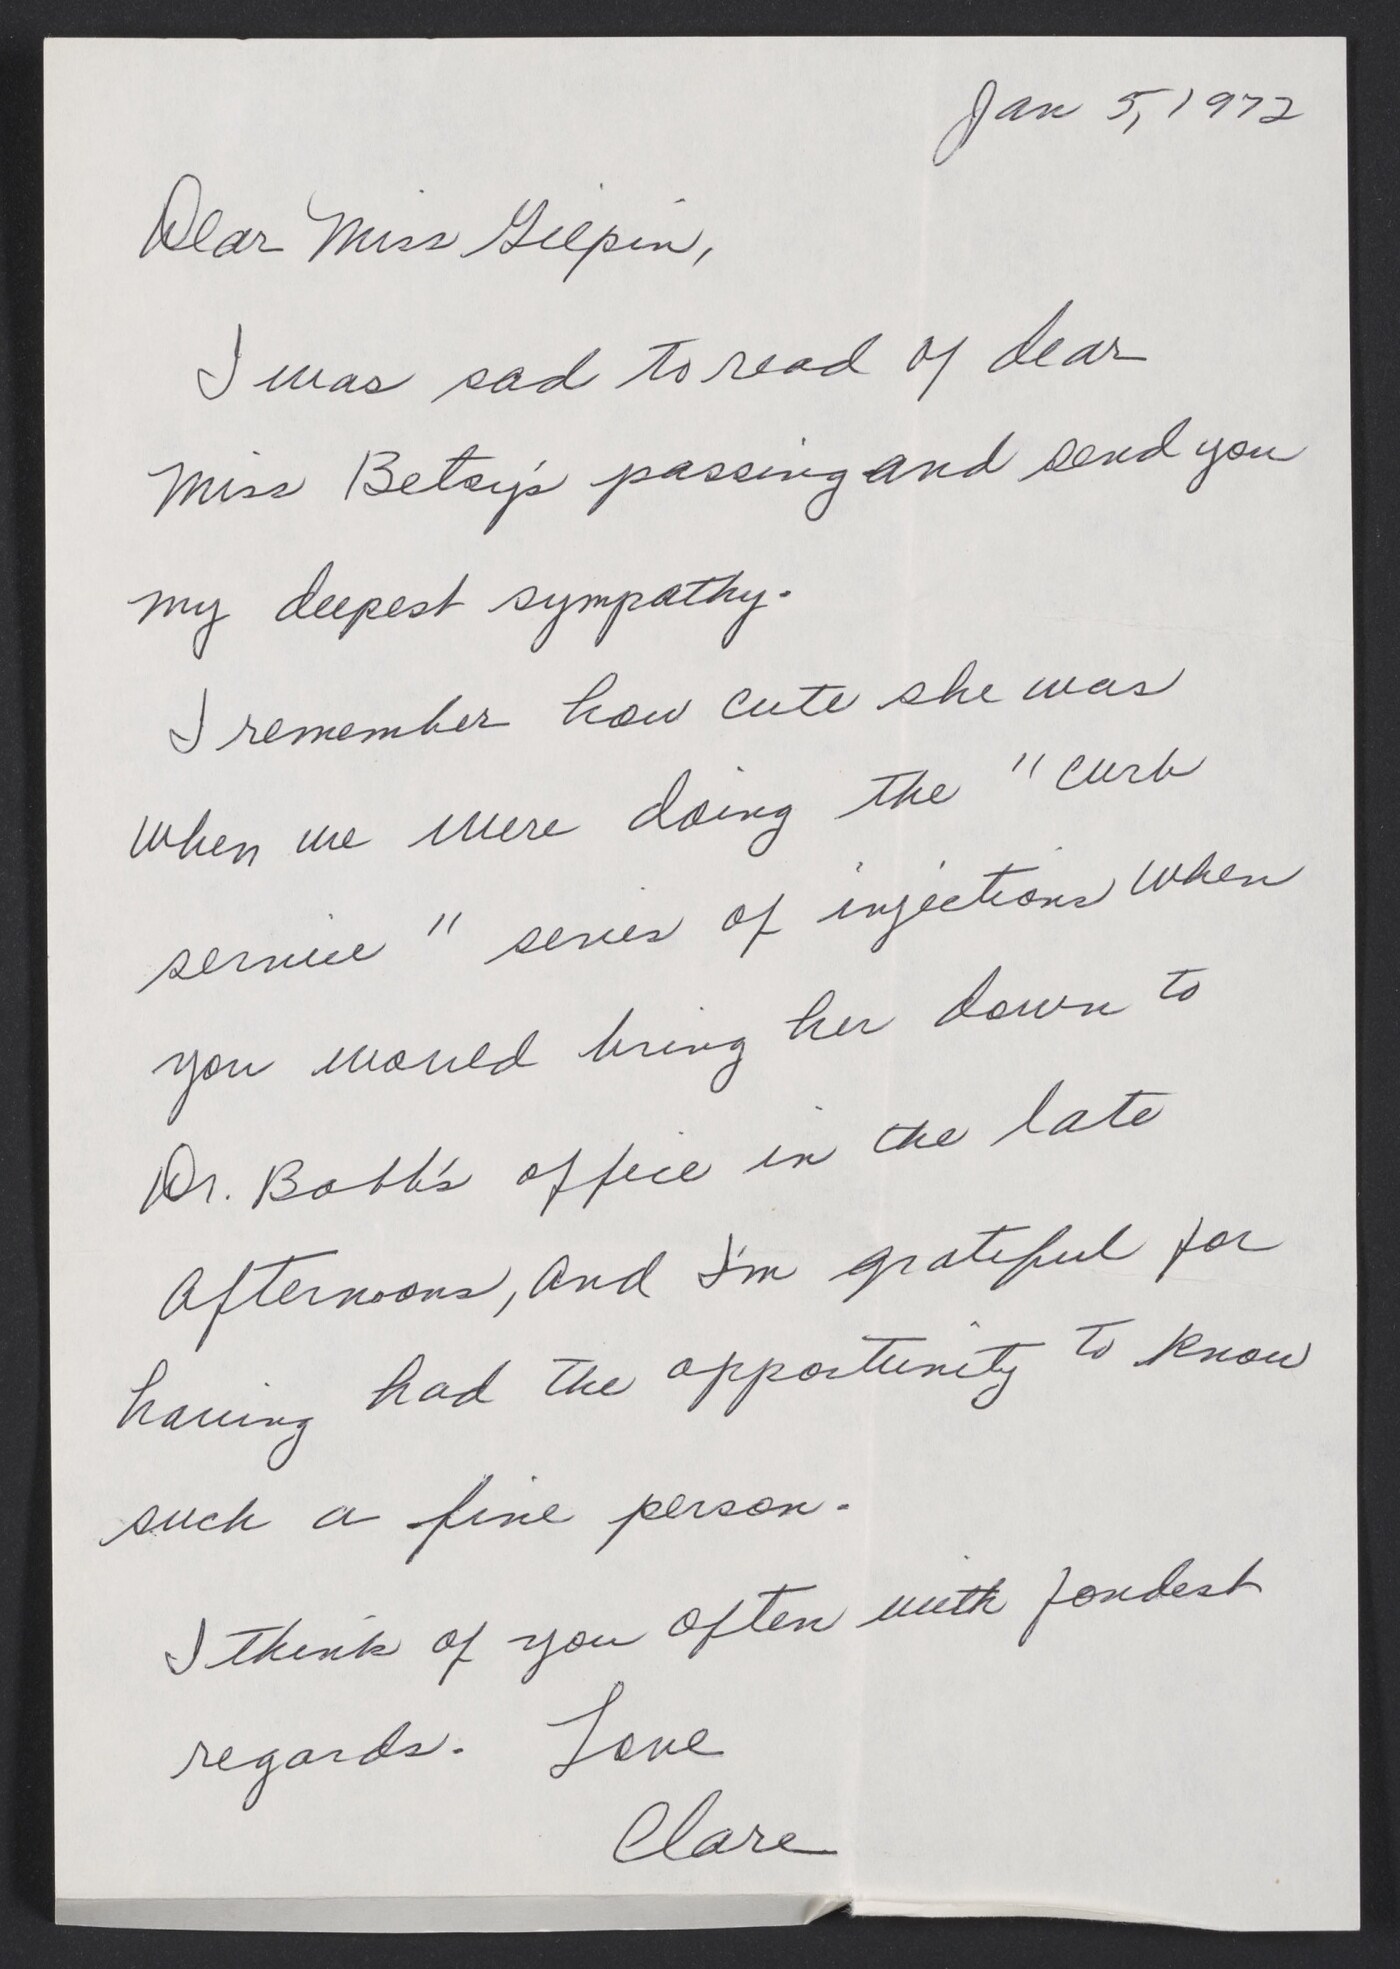 Jan 5, 1972
Dear Miss Gilpin,
I was sad to read of dear
Miss Betsy's passing and send you
my deepest sympathy.
I remember how cute she was
when we were doing the "curb
service" series of injections when
you would bring her down to
Dr. Bobb's office in the late
afternoons, and I'm grateful for
having had the opportunity to know
such a fine person.
I think of you often with fondest
regards. Love
Clare